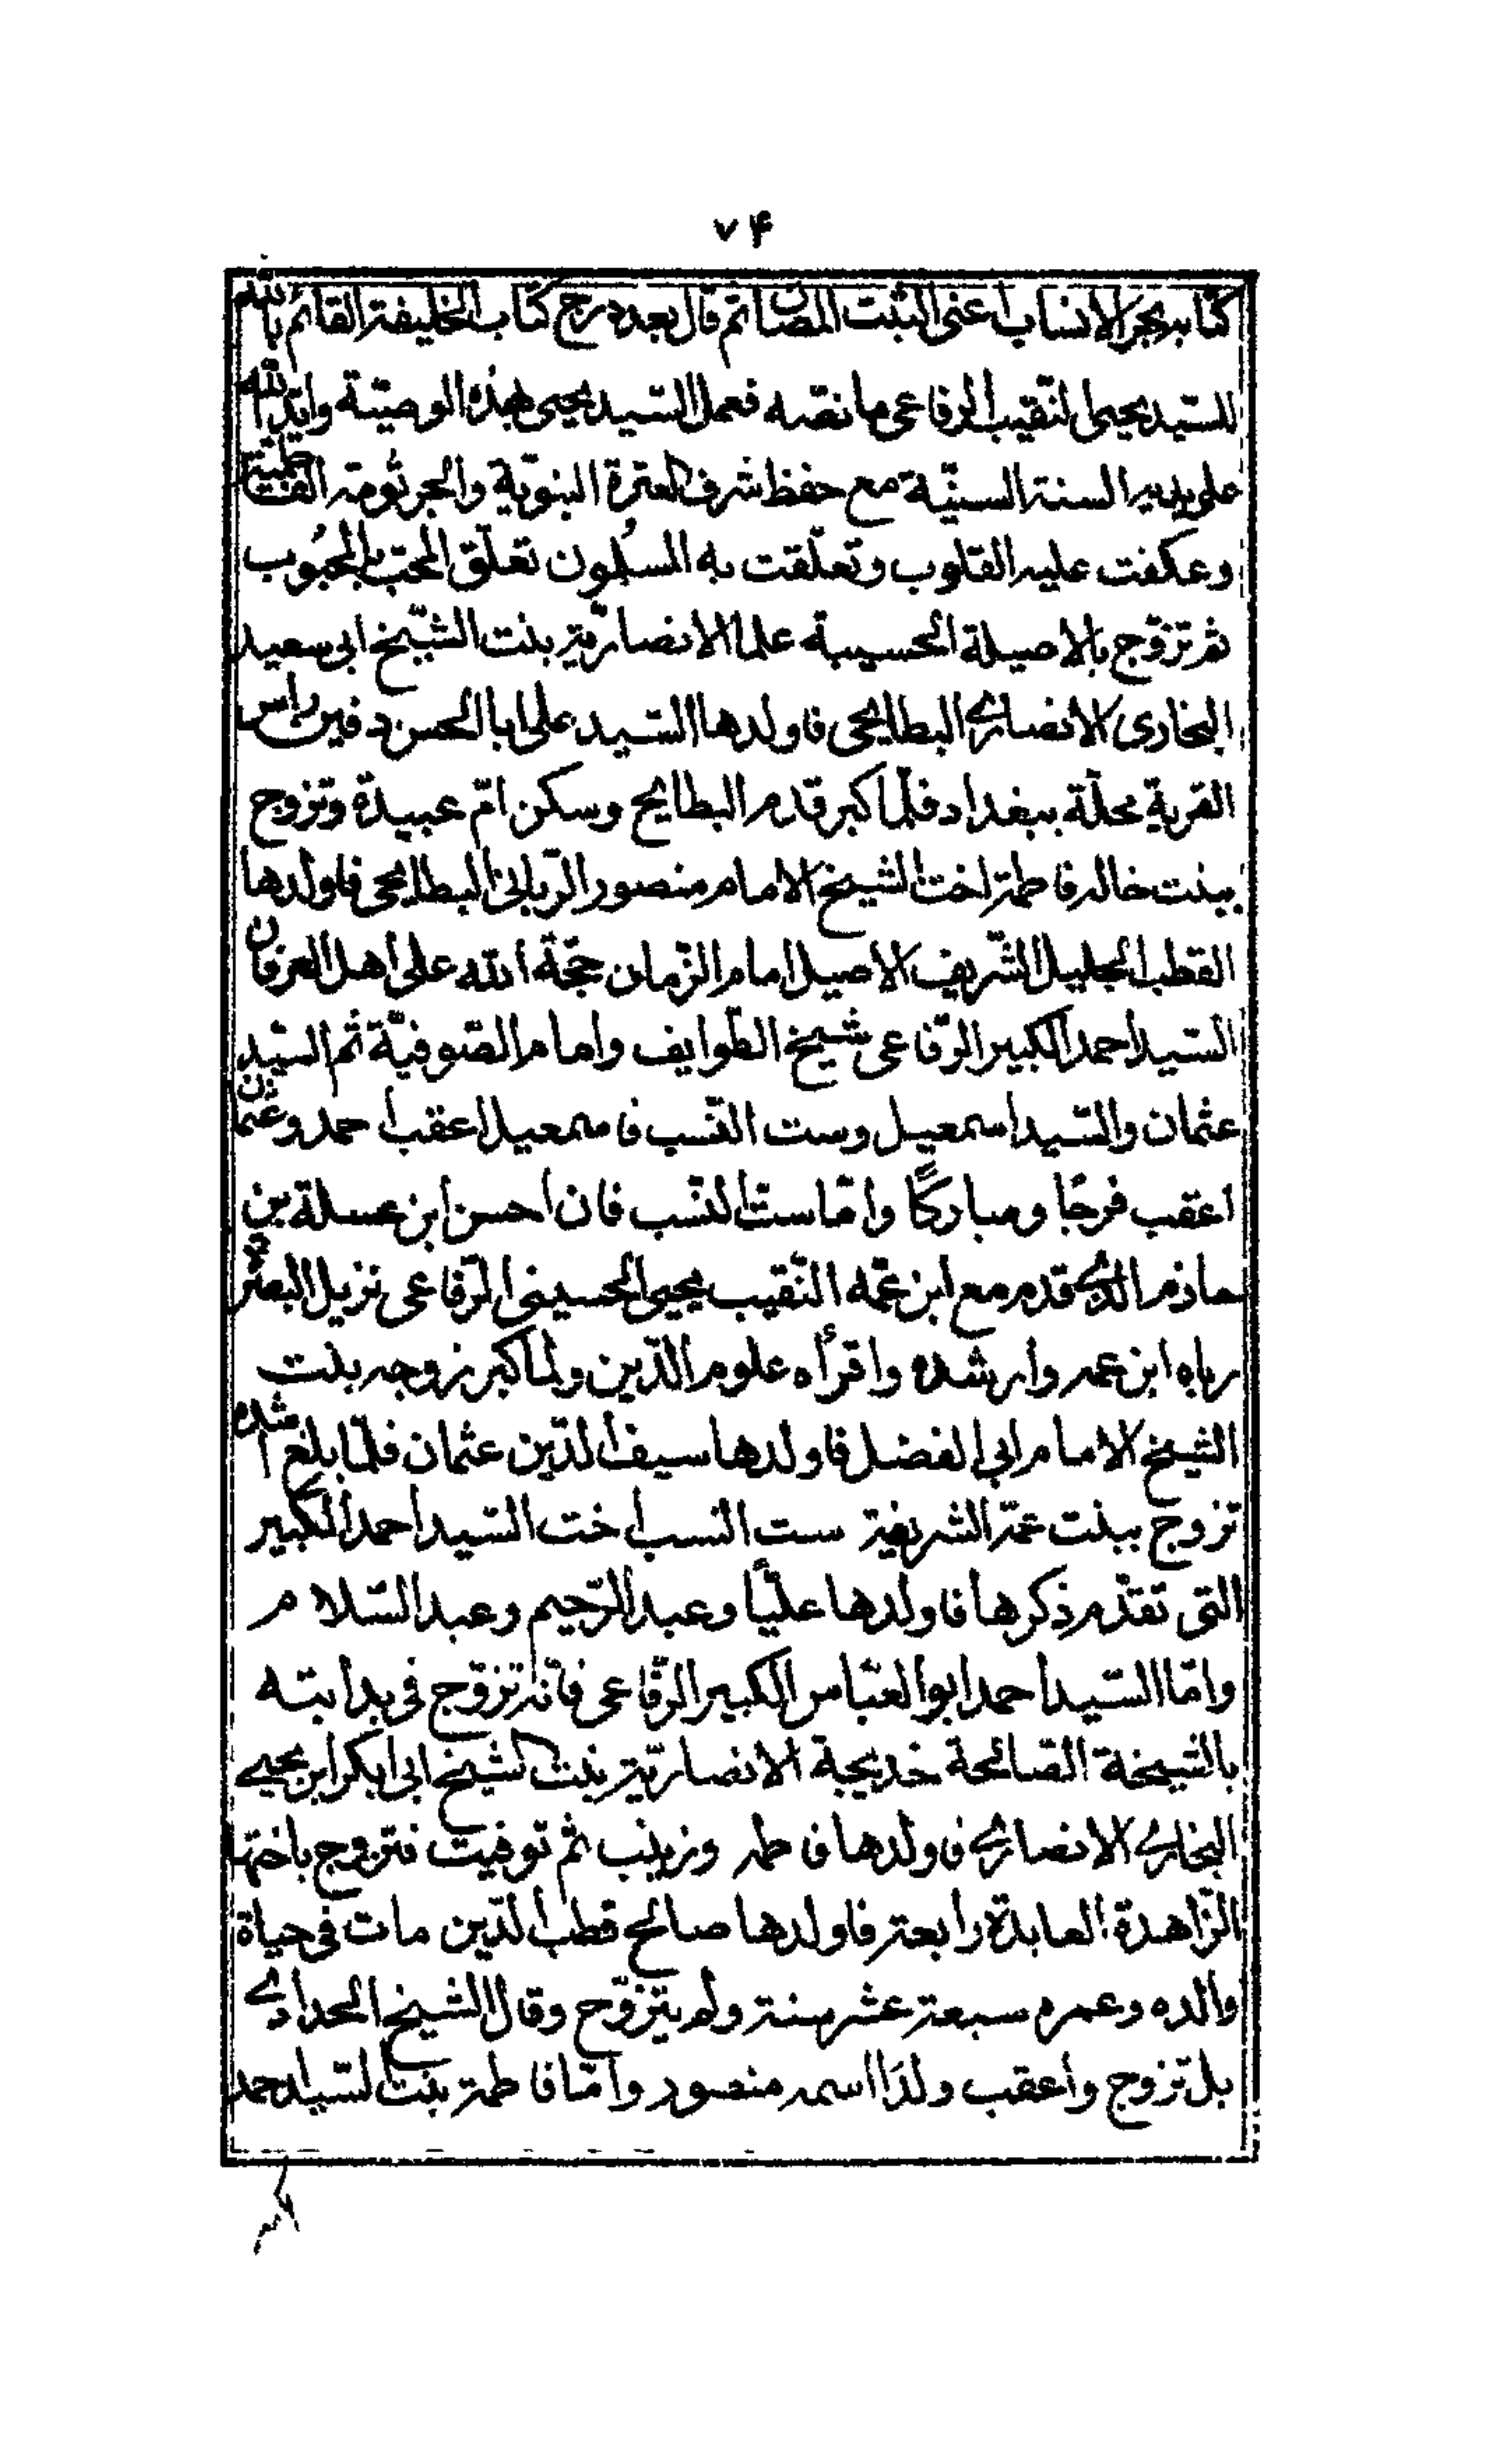 ٧۴
كتابه بحر الانساب اعنى الثبت المصان ثم قال بعد درج كتاب الخليفة القائم بالله
للسيد يحيى النقيب الرفاعى ما نصّه فعمل السّيد يحيى بهذه الوصيّة وايّد الله
على يديه السنة السنيّة مع حفظ شرف العترة النبويّة والجرثومة الفاطميّة
وعكفت عليه القلوب وتعلّقت به المسلمون تعلّق المحبّ بالمحبُوب
ثم تزوّج بالاصيلة الحسيبة علما الانصاريّة بنت الشّيخ ابى سعيد
البخارى الانصارى البطايحى فاولدها السّيد على ابا الحسن دفين راس
القرية محلّة ببغداد فلمّا كبر قدم البطايح وسكن امّ عبيدة وتزوج
ببنت خاله فاطمة اخت الشيخ الامام منصور الربانى البطايحى فاولدها
القطب الجليل الشّريف الاصيل امام الزّمان حجّة الله على اهل العرفان
السّيد احمد الكبير الرّفاعى شيخ الطّوايف وامام الصّوفيّة ثم السّيد
عثمان والسّيد اسمعيل وست النّسب فاسمعيل اعقب احمد وعثمان
اعقب فرجًا ومباركًا وامّا ست النّسب فان احسن ابن عسلة بن
حازم الذى قدم مع ابن عمّه النّقيب يحيى الحسينى الرّفاعى نزيل البصرة
رباه ابن عمه وارشده واقرأه علوم الدّين ولما كبر زوجه بنت
الشيخ الامام ابى الفضل فاولدها سيف الدّين عثمان فلمّا بلغ اشده
تزوج ببنت عمّه الشريفة ست النسب اخت السّيد احمد الكبير
التى تقدّم ذكرها فاولدها عليًّا وعبد الرّحيم وعبد السّلام
وامّا السّيد احمد ابو العبّاس الكبير الرّفاعى فانّه تزوّج فى بدايته
بالشيخة الصّالحة خديجة الانصاريّة بنت الشيخ ابى ابكر ابن يحيى
البخارى الانصارى فاولدها فاطمه وزينب ثم توفيت فتزوج باختها
الزّاهدة العابدة رابعة فاولدها صالح قطب الدّين مات فى حياة
والده وعمره سبعة عشر سنة ولم يتزوّج وقال الشيخ الحدادى
بل تزوج واعقب ولدًا اسمه منصور وامّا فاطمة بنت السّيد احمد